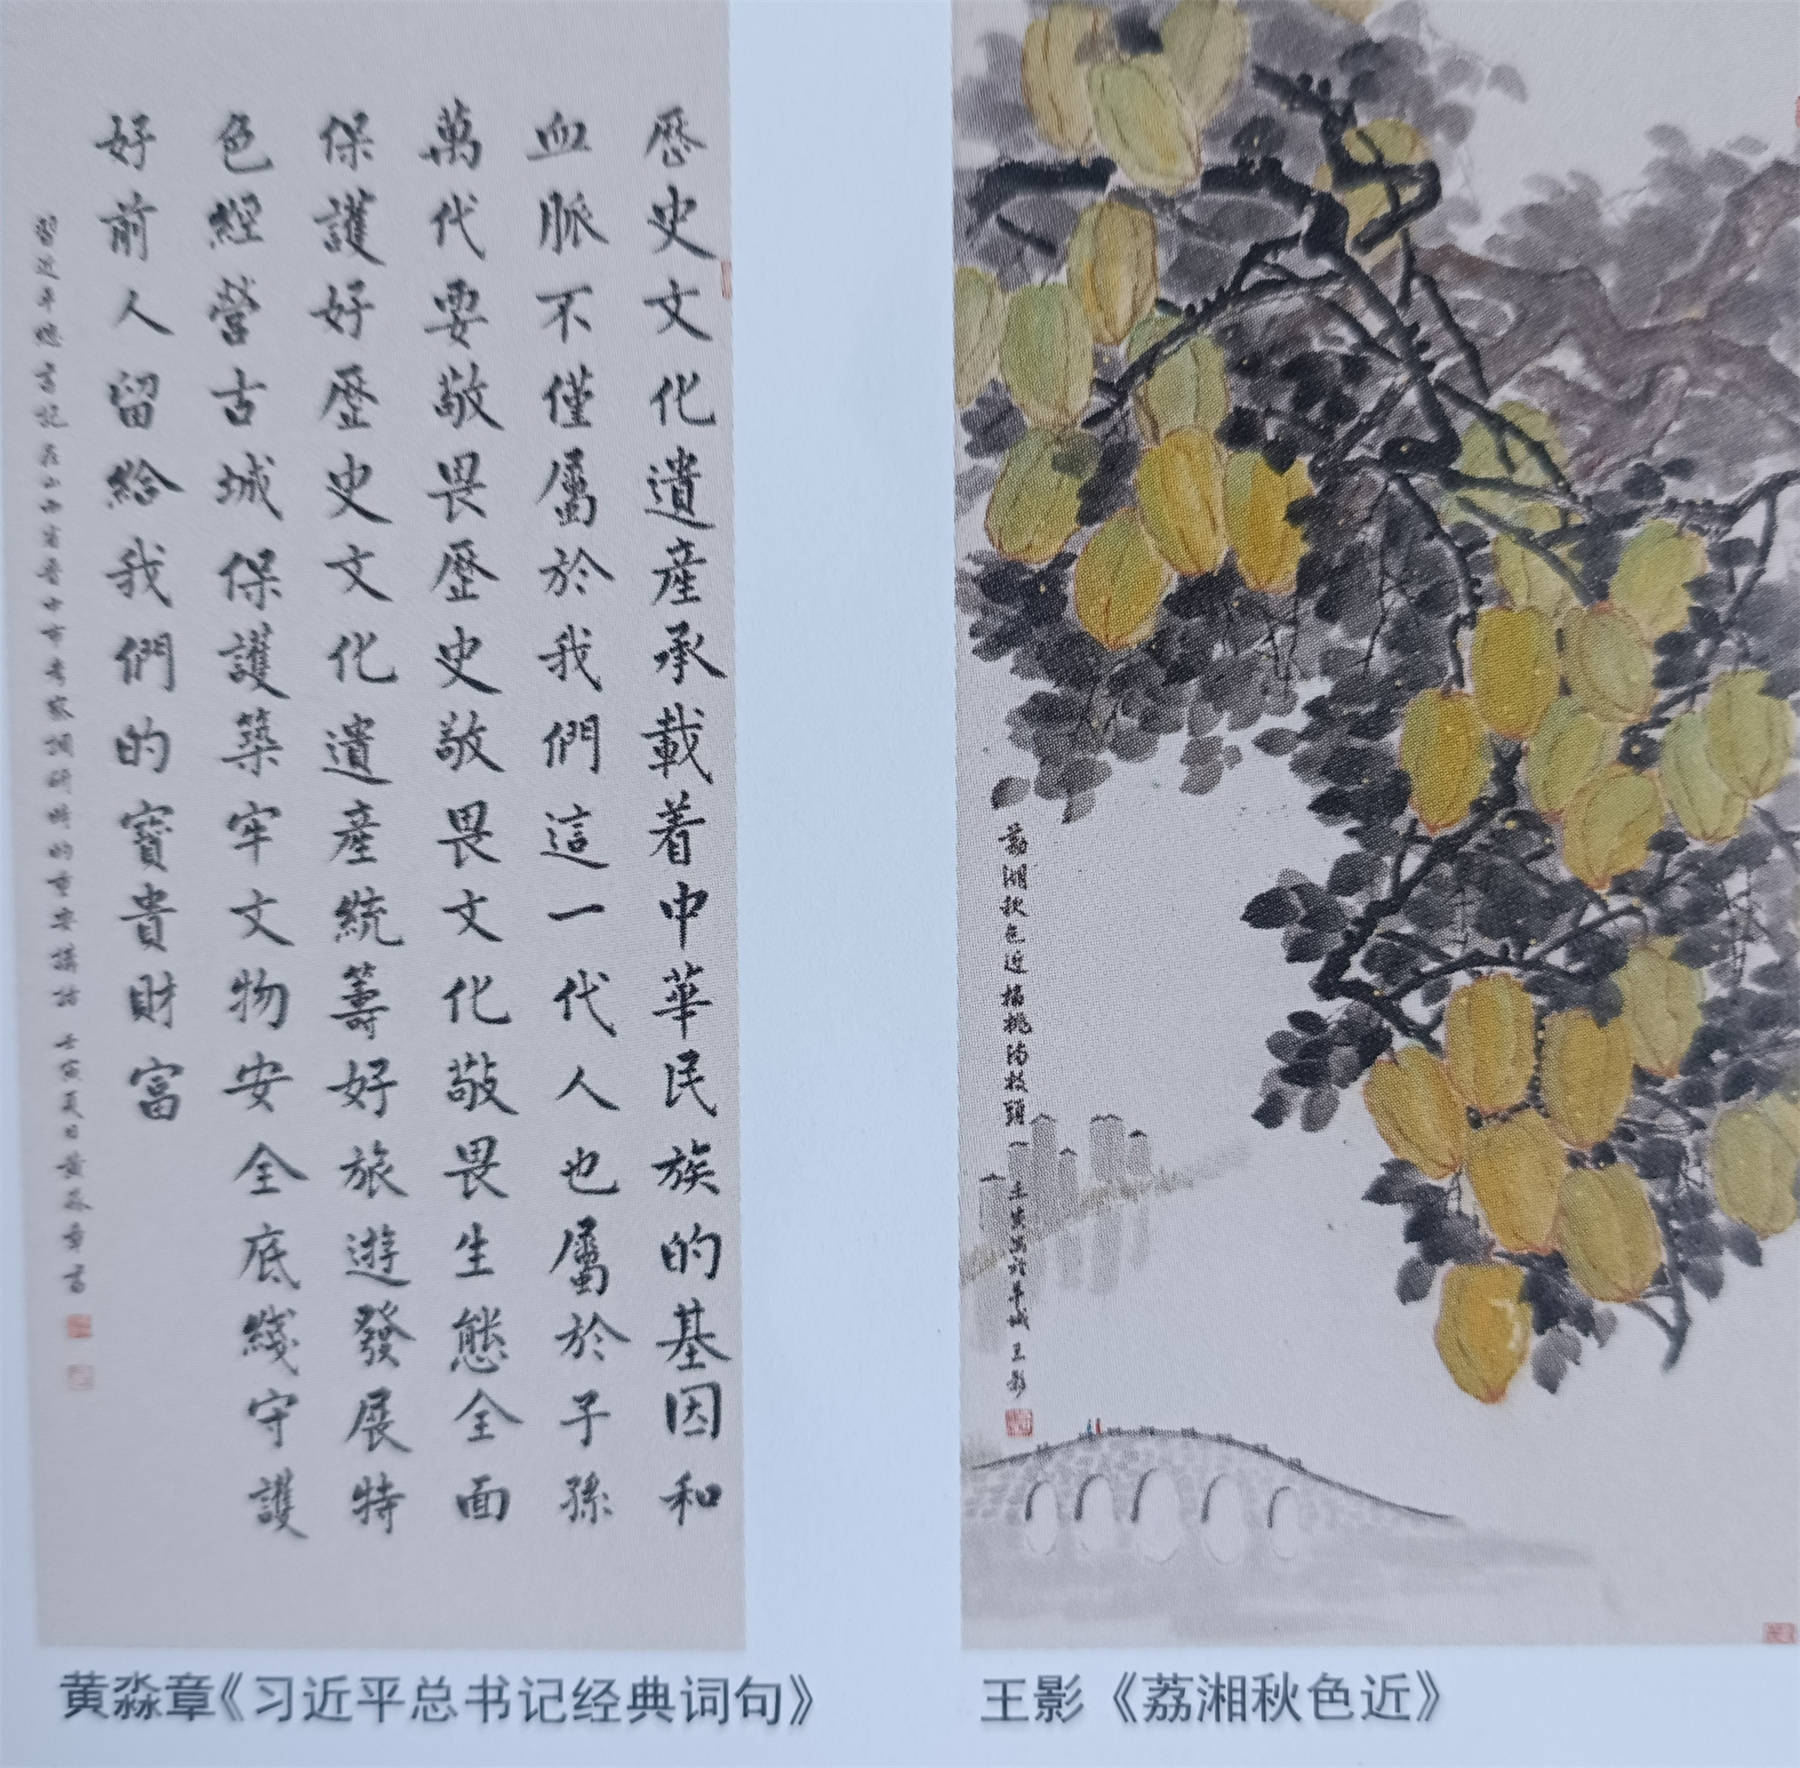 歷史文化遺產承載着中華民族的基因和
血脈不僅屬於我們這一代人也屬於子孫
萬代要敬畏歷史敬畏文化敬畏生態全面
保護好歷史文化遺產統籌好旅遊發展特
色經營古城保護築牢文物安全底綫守護
好前人留給我們的寶貴財富
習近平總書記在山西省晋中市考察調研時的重要講話 壬寅夏日黄淼章書
荔湖秋色近楊桃滿枝頭
壬寅 於羊城 王影
黄淼章《习近平总书记经典词句》
王影《荔湘秋色近》